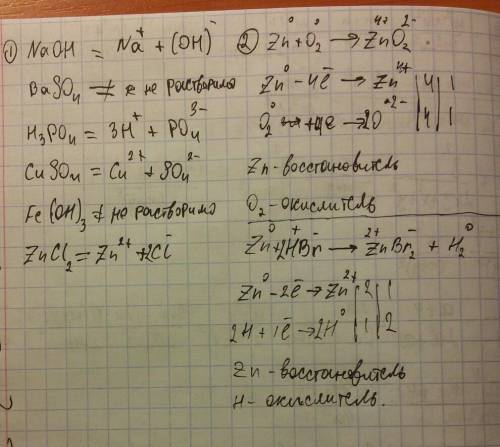 ① NaOH = Na⁺ + (OH)⁻
BaSO₄ ≠ не растворимо
H₃PO₄ = 3H⁺ + PO₄³⁻
CuSO₄ = Cu²⁺ + SO₄²⁻
Fe(OH)₃ ≠ не растворимо
ZnCl₂ = Zn²⁺ + 2Cl⁻
② Zn⁰ + O₂⁰ → Zn⁴⁺O₂²⁻
Zn⁰ - 4ē → Zn⁴⁺ | 4 | 1
O₂⁰ + 4ē → 2O⁻² | 4 | 1
Zn - восстановитель
O₂ - окислитель
Zn⁰ + 2H⁺Br⁻ → Zn²⁺Br₂⁻ + H₂⁰
Zn⁰ - 2ē → Zn²⁺ | 2 | 1
2H + 1ē → 2H⁰ | 1 | 2
Zn - восстановитель
H - окислитель.